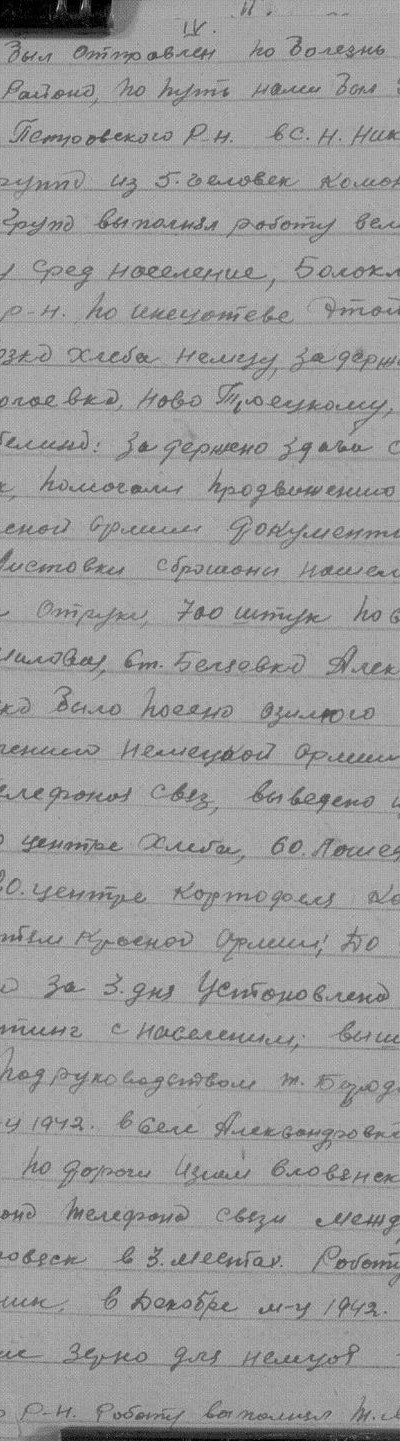 IV.
был отправлен по болезнь
Района, по путь нами был
Петровского Р-Н. в с. Н. Ник
группа из 5. человек коман
Група выполнял работу вел
у сред население, Балакл
р-н. по инецотеве этой
озка хлеба немцу, задерж
Ново Троецкому,
задержено здача с
к, помогали продвижению
сной армии документ
Листовки сброшоны нашем
и Отруки, 700 штук по в
ст. Бецевка Алек
ка было посено озимого
чению немецкой армии
елефоная свез, выведено и
о центре хлеба, 60. Лошед
20. центре картофеля ка
Красной Армии; До
о за 3. дня Установлено
тинг с населеним, выш
Под руководством т.
м-ц 1942. в селе Александровка
по дороги Изюм Словянск
она телефона связи межд
ловяск в 3. местах. Работу
ник, в Декабре м-ц 1942.
ие зерно для немцов
о Р-Н. Работу выполнял т.